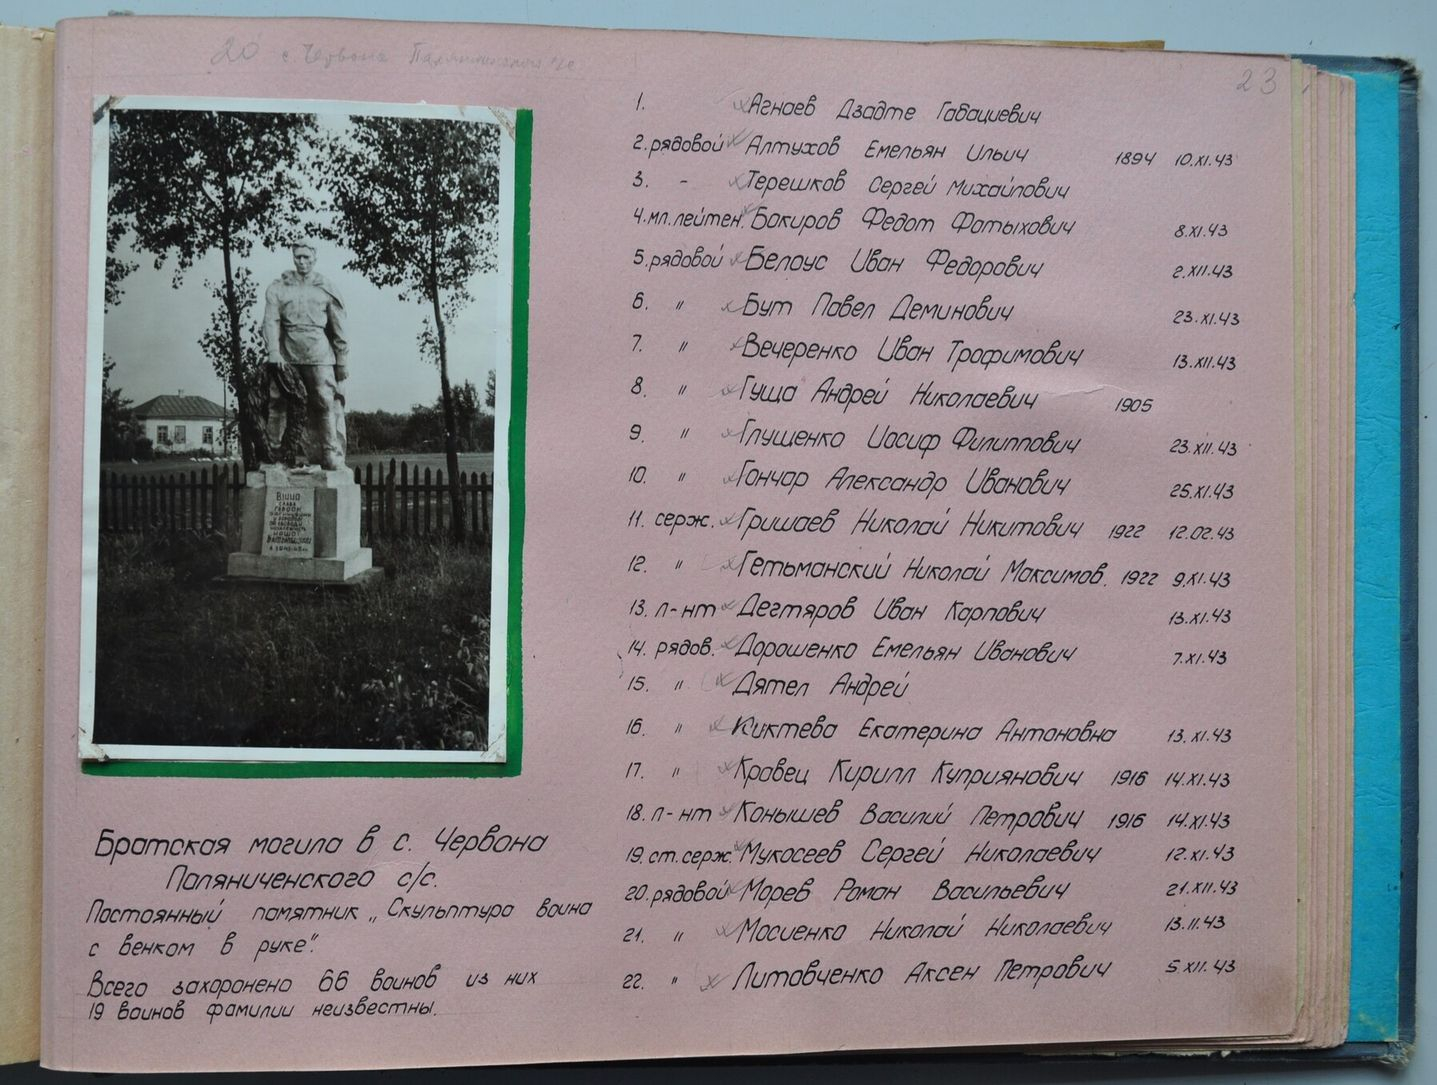 20 с. Червона Паляниченского с/с
23
1. Агнаев Дзадте Гадациевич
2. рядовой Алтухов Емельян Ильич 1894 10.XI.43
3. - Терешков Сергей Михайлович
4. мл. лейтен. Бакиров Федот Фатыхович 8.XI.43
5. рядовой Белоус Иван Федорович 2.XII.43
6. " Бут Павел Деминович 23.XI.43
7. " Вечеренко Иван Трофимович 13.XII.43
8. " Гуща Андрей Николаевич 1905
9. " Глущенко Иосиф Филиппович 23.XII.43
10. " Гончар Александр Иванович 25.XI.43
11. серж. Гришаев Николай Никитович 1922 12.02.43
12. " Гетьманский Николай Максимов. 1922 9.XI.43
13. л-нт Дегтяров Иван Карпович 13.XI.43
14. рядов. Дорошенко Емельян Иванович 7.XI.43
15. " Дятел Андрей
16. " Киктева Екатерина Антоновна 13.XI.43
17. " Кравец Кирилл Куприянович 1916 14.XI.43
18. л-нт Конышев Василий Петрович 1916 14.XI.43
19. ст. серж. Мукосеев Сергей Николаевич 12.XI.43
20. рядовой Морев Роман Васильевич 21.XII.43
21. " Мосиенко Николай Николаевич 13.11.43
22. " Литовченко Аксен Петрович 5.XII.43
Вічна
слава
героям
нашої
Братская могила в с. Червона
Паляниченского с/с.
Постоянный памятник „Скульптура воина
с венком в руке".
Всего захоронено 66 воинов из них
19 воинов фамилии неизвестны.